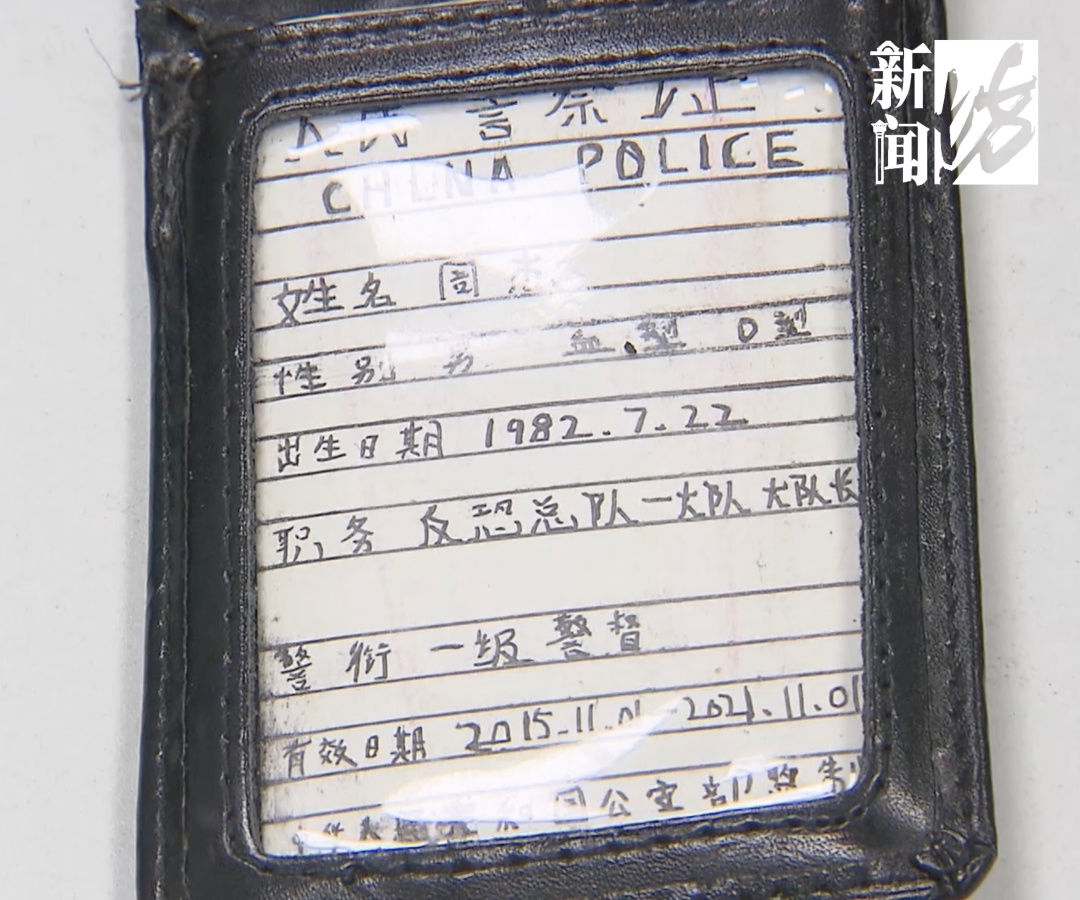 新闻
坊
人民警察证
CHINA POLICE
姓名 周
性别 男 血型 O型
出生日期 1982.7.22
职务 反恐总队一大队大队长
警衔 一级警督
有效日期 2015.11.01 2021.11.01
和国公安部监制